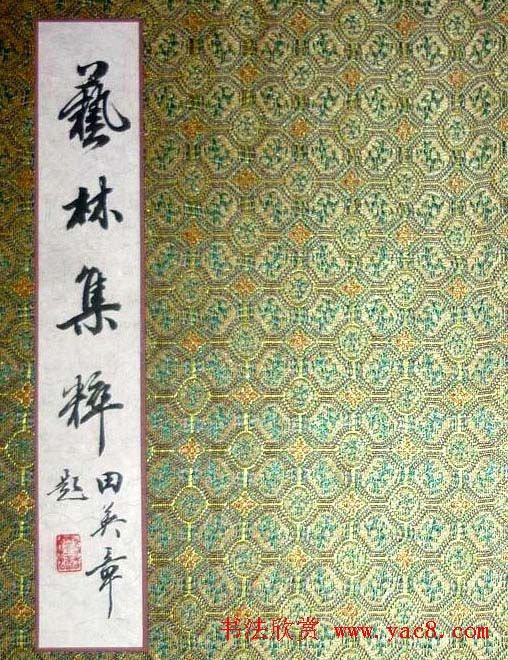 藝林集粹
田英章
題
书法欣赏 www.yac8.com